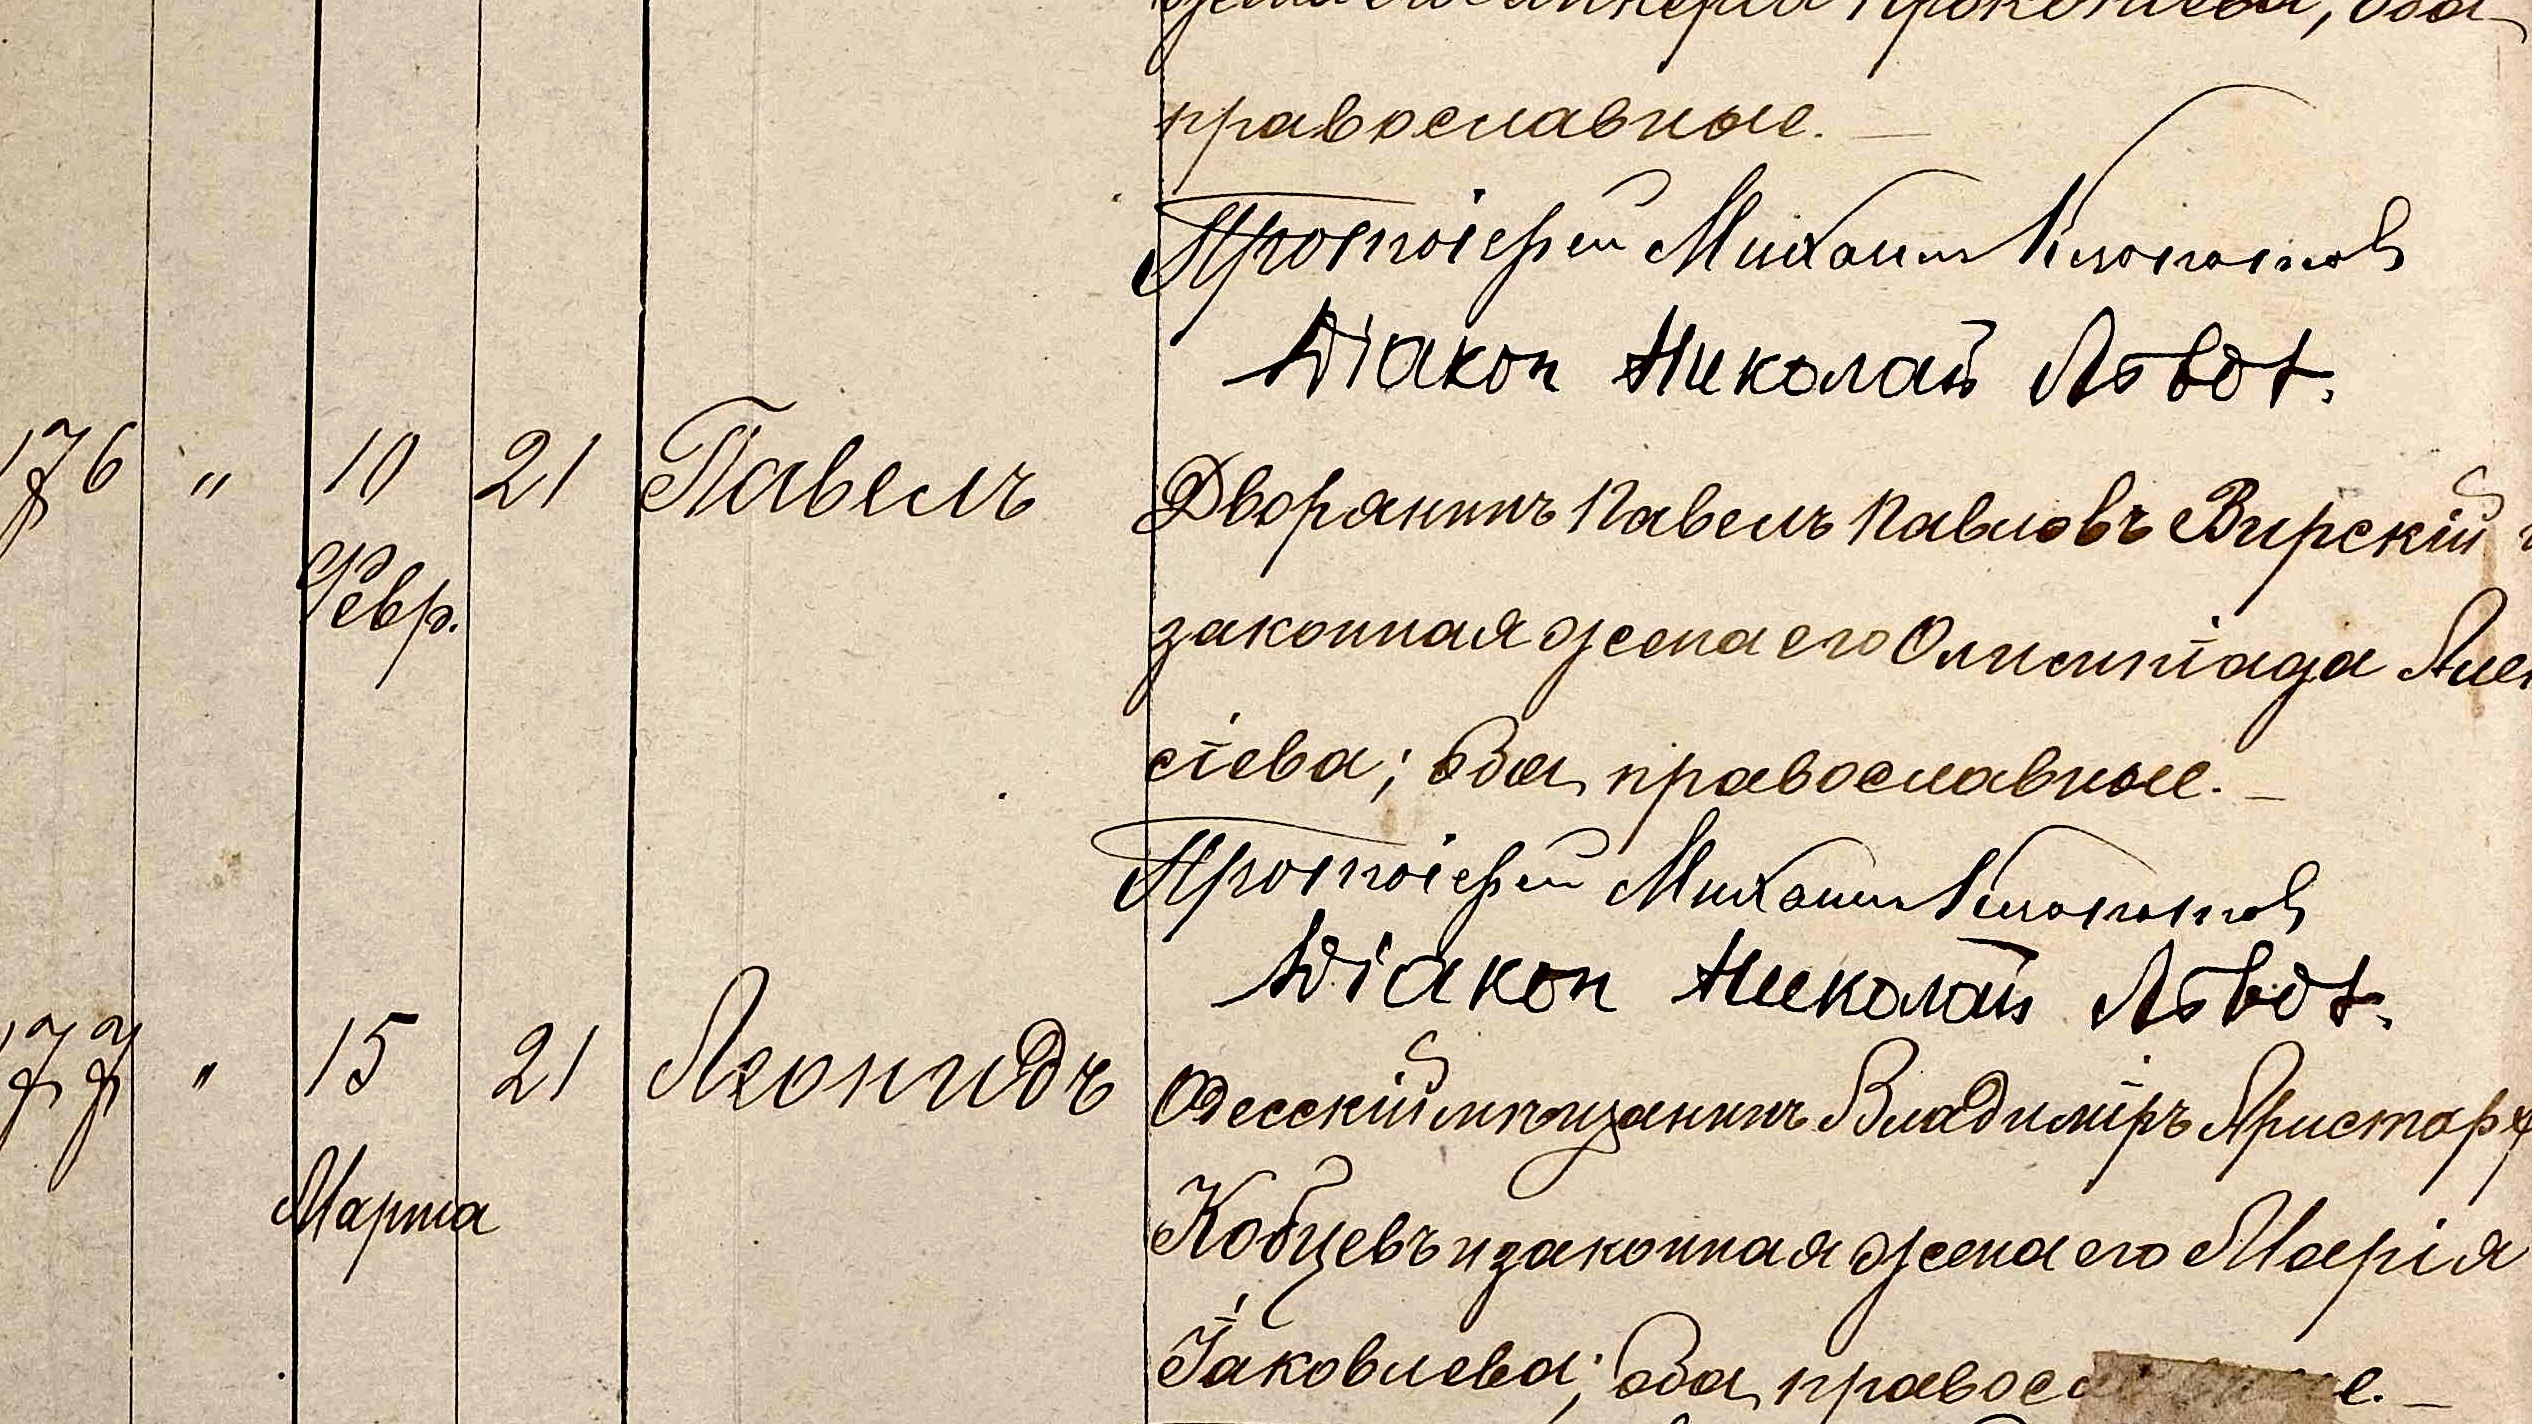 жена его Прокопіева, оба
православные. —
Протоіерей Михаил Клопотов
Діакон Николай Лѣвдт.
176 " 10 21 Павелъ Дворянинъ Павелъ Павловъ Вирскій и
Февр. законная жена его Олимпіада Алек
сіева; оба православные. —
Протоіерей Михаил Клопотов
Діакон Николай
177 " 15 21 Леонидъ Одесскій мѣщанинъ Владиміръ Аристарх
Марта Кобцевъ и законная жена его Марія
Іаковлева; оба правосл е. —